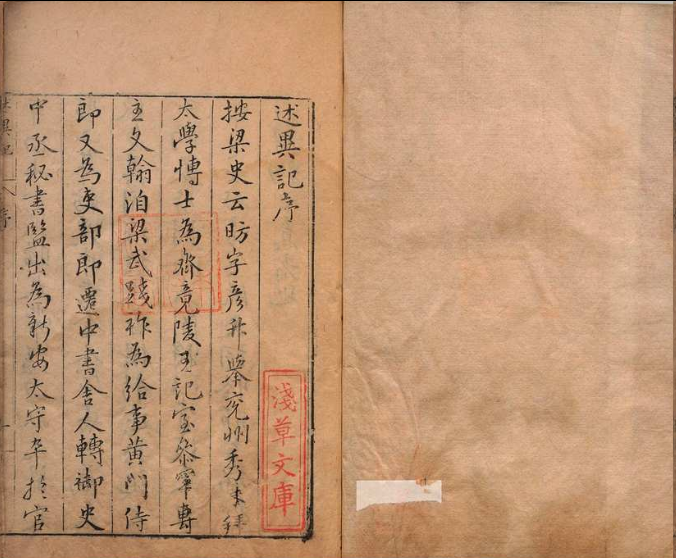 述異記序
按梁史云昉字彥升舉兗州秀才拜
太學博士為齊竟陵王記室參軍專
主文翰洎梁武踐祚為給事黃門侍
郎又為吏部郎遷中書舍人轉御史
中丞秘書監出為新安太守卒於官
述異記 序
淺草文庫